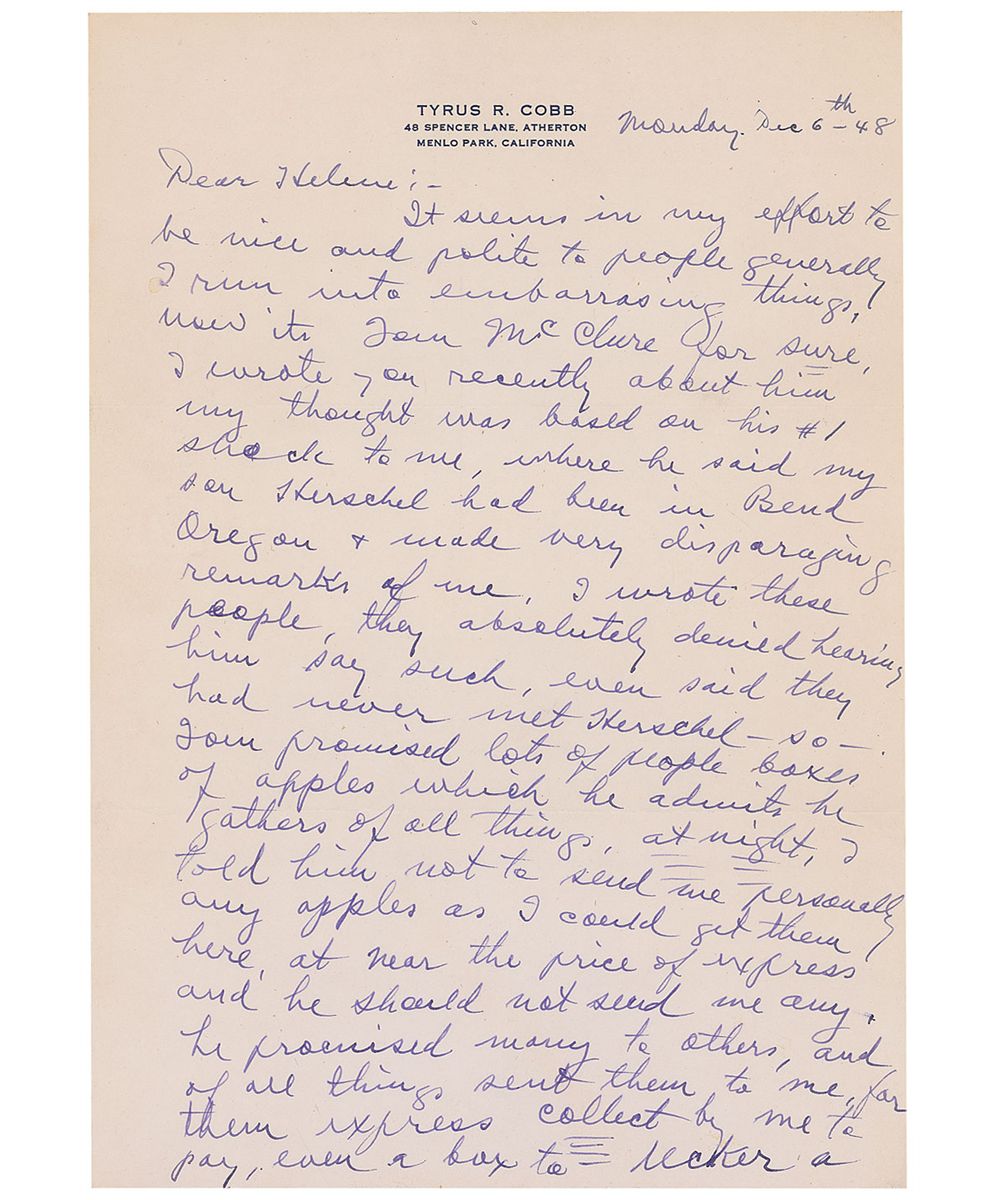 TYRUS R. COBB
48 SPENCER LANE, ATHERTON
MENLO PARK, CALIFORNIA
Monday. Dec 6th - 48
Dear Helene:-
It seems in my effort to
be nice and polite to people generally
I run into embarrasing things,
now its Tom McClure for sure,
I wrote you recently about him
my thought was based on his #1
shock to me, where he said my
son Herschel had been in Bend
Oregon + made very disparaging
remarks of me, I wrote these
people, they absolutely denied hearing
him say such, even said they
had never met Herschel - so -
Tom promised lots of people boxes
of apples which he admits he
gathers of all things, at night, I
told him not to send me personally
any apples as I could get them
here, at near the price of express
and he should not send me any.
he promised many to others, and
of all things sent them to me, for
them express collect by me to
pay, even a box to Ucker a